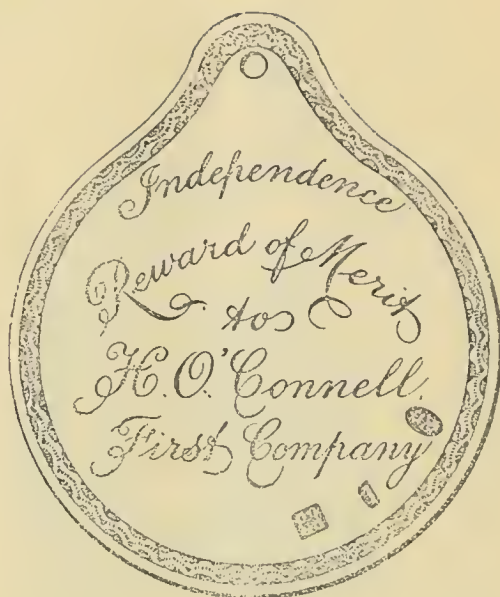 Independence
Reward of Merit
to
H. O'Connell.
First Company